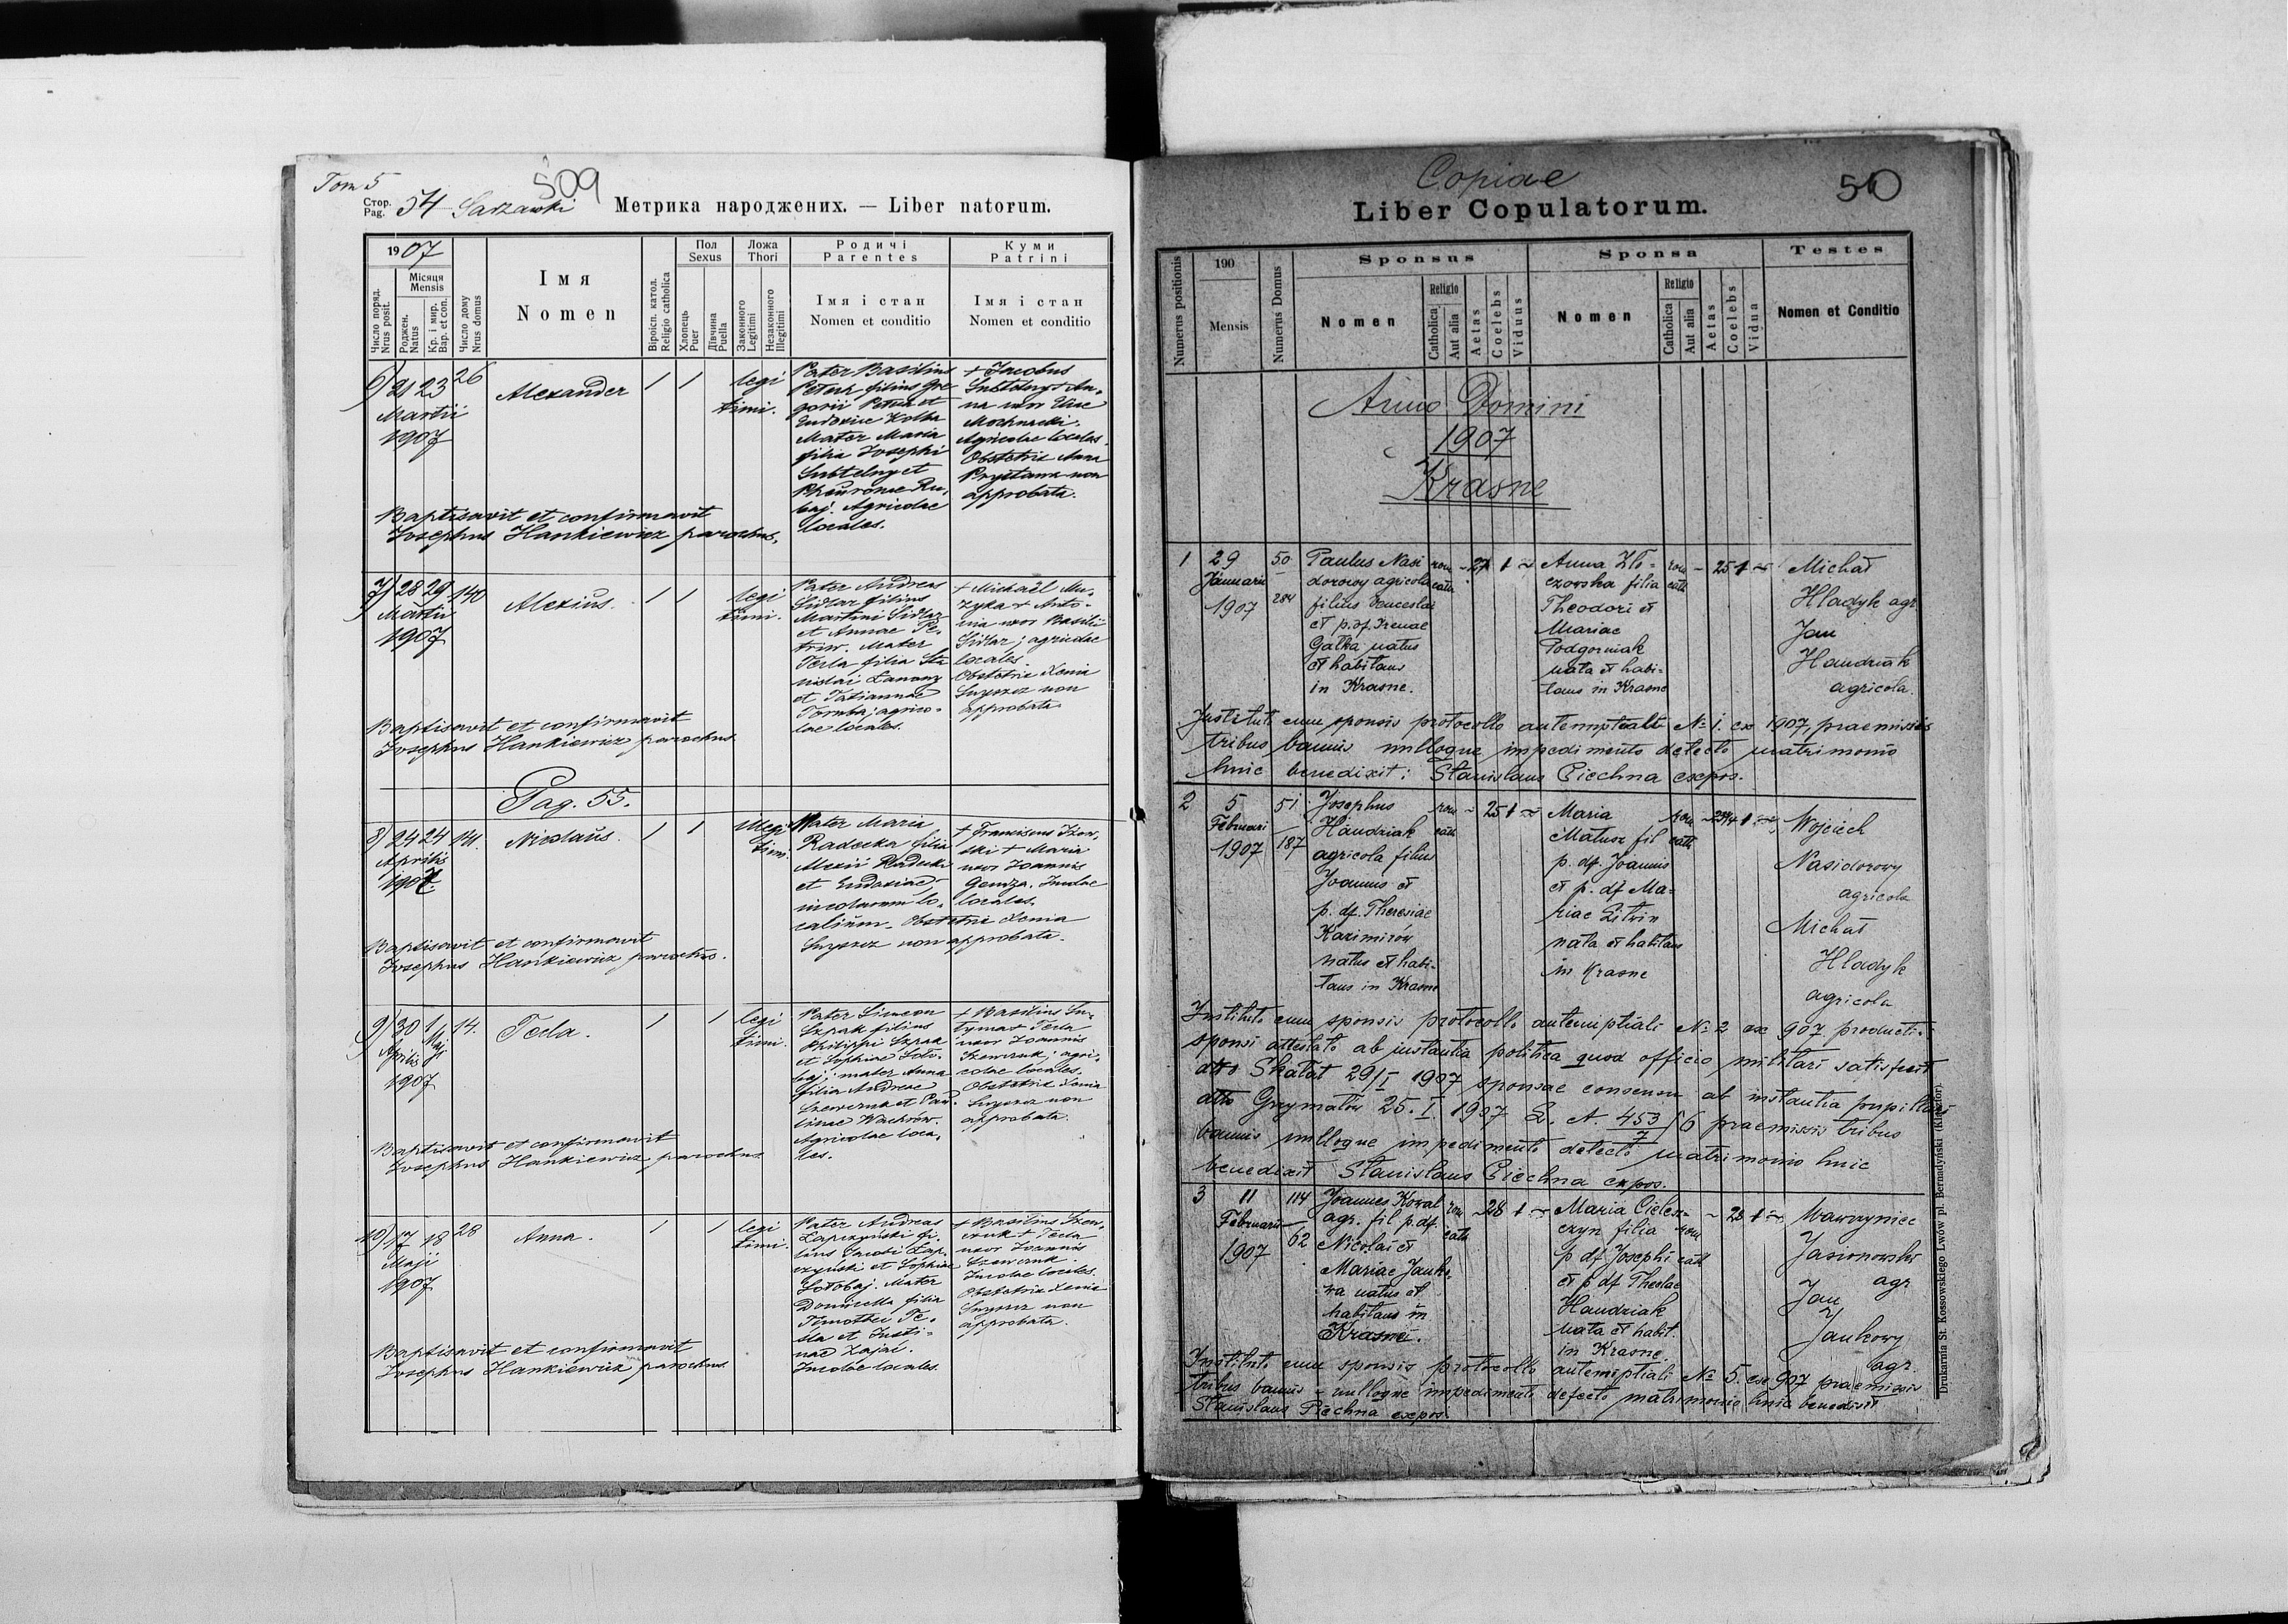 Tom 5
509
Стор. Pag. 54 Sarzawki
Метрика народжених. — Liber natorum.
1907
Число поряд. Nrus posit.
Місяця Mensis
Роджен. Natus
Кр. і мир. Bap. et con.
Число дому Nrus domus
Імя
Nomen
Віроісп. катол. Religio catholica
Пол Sexus
Хлопець Puer
Дївчина Puella
Ложа Thori
Законного Legitimi
Незаконного Illegitimi
Родичі Parentes
Імя і стан
Nomen et conditio
Куми Patrini
Імя і стан
Nomen et conditio
6) 21 23 26
Martii
1907
Alexander
1 1
legi
timi.
Pater Basilius
Petna filius Gre
gorii Petna et
Eudoxiae
Mater Maria
filia Josephi
Subtelny et
Agricolae
locales.
+ Jacobus
Subtelny + An-
na uxor
Agricolae locales.
Obstetrix Anna
non
approbata.
Baptisavit et confirmavit
Josephus Hankiewicz parochus.
7) 28 29 140
Martii
1907
Alexius.
1 1
legi
timi.
Pater Andreas
Sidlar filius
Martini Sidlar
et Annae Pe-
triw. Mater
Tecla filia Sta
nislai
et Tatiannae
agrico-
lae locales.
+ Michaël Mu-
zyka + Anto-
nia uxor Basilii
Sidlar; agricolae
locales.
Obstetrix Xenia
non
approbata.
Baptisavit et confirmavit
Josephus Hankiewicz parochus.
Pag. 55.
8) 24 24 141.
Aprilis
1907.
Nicolaus.
1 1
Illegi
timi.
Mater Maria
Radecka filia
Alexii Radecki
et Eudoxiae
incolarum lo-
calium. Obstetrix Xenia
non approbata.
+ Franciscus
+ Maria
uxor Joannis
Incolae
locales.
Baptisavit et confirmavit
Josephus Hankiewicz parochus.
9) 30 1 14.
Aprilis Maji
1907
Tecla.
1 1
legi
timi.
Pater Simeon
Szpak filius
Philippi Szpak
et Sophiae Soło-
baj; mater Anna
filia Andreae
Szewczuk et Pau-
linae
Agricolae loca-
les.
+ Basilius
+ Tecla
uxor Joannis
Szewczuk; agri-
colae locales.
Obstetrix Xenia
non
approbata.
Baptisavit et confirmavit
Josephus Hankiewicz parochus.
10) 17 18 28
Maji
1907
Anna.
1 1
legi
timi.
Pater Andreas
Łapczyński fi-
lius Jacobi Łap-
czyński et Sophiae
Sołobaj. Mater
Domicella filia
Timothei Te-
sla et Justi-
nae Zajać.
Incolae locales.
+ Basilius Szew-
czuk + Tecla
uxor Joannis
Szewczuk.
Incolae locales.
Obstetrix Xenia
non
approbata.
Baptisavit et confirmavit
Josephus Hankiewicz parochus.
Copiae
510
Liber Copulatorum.
Numerus positionis
190
Mensis
Numerus Domus
Sponsus
Nomen
Religio
Catholica
Aut alia
Aetas
Coelebs
Viduus
Sponsa
Nomen
Religio
Catholica
Aut alia
Aetas
Coelebs
Vidua
Testes
Nomen et Conditio
Anno Domini
1907
Krasne
1 29
Januarii
1907
50
284
Paulus Nasi
dorowy agricola
filius Venceslai
et p. df. Irenae
Gałka natus
et habitans
in Krasne.
rom cath - 27 1 ~
Anna Zło-
czowska filia
Theodori et
Mariae
Podgorniak
nata et habi-
tans in Krasne
rom cath - 25 1 ~
Michał
Hladyk agr.
Jan
Handziak
agricola.
Instituto cum sponsis protocollo antenuptiali № 1. ex 1907, praemissis
tribus bannis nulloque impedimento detecto matrimonio
huic benedixit: Stanislaus Piechna expos.
2 5
Februari
1907
51
187
Josephus
Handziak
agricola filius
Joannis et
p. df. Theresiae
Kazimirów
natus et habi-
tans in Krasne
rom cath - 25 1 ~
Maria
Matusz fil
p. df. Joannis
et p. df Ma-
riae Litwin
nata et habitans
in Krasne
rom cath
Wojciech
Nasidorowy
agricola
Michał
Hladyk
agricola
Instituto cum sponsis protocollo antenuptiali № 2 ex 907 producti
sponsi attestato ab instantia politica quod officio militari satisfecit
dtto Skałat 29/I 1907 sponsae consensu ab instantia pupillari
dtto Grzymałów 25. I. 1907 L. A. 453/7 /6 praemissis tribus
bannis nulloque impedimento detecto matrimonio huic
benedixit Stanislaus Piechna expos.
3 11
Februarii
1907
114
62
Joannes Kowal
agr. fil p. df.
Nicolai et
Mariae Janko-
wa natus et
habitans in
Krasne.
rom cath - 28 1 ~
Maria Cielen-
czyn filia
p df Josephi
et p df Theclae
Handziak
nata et habit.
in Krasne.
rom cath - 28 1 ~
Wawrzyniec
Jasionowski
agr
Jan
Jankowy
agr.
Instituto cum sponsis protocollo antenuptiali № 5. ex 907 praemissis
tribus bannis - nulloque impedimento detecto matrimonio huic benedixit
Stanislaus Piechna expos.
Drukarnia St. Kossowskiego Lwów pl. Bernadyński (Klasztor).